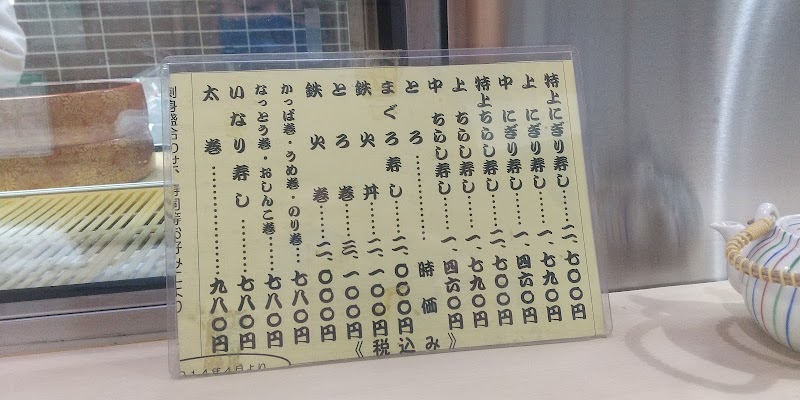 特上にぎり寿し……二、七〇〇円
上 にぎり寿し……一、七九〇円
中 にぎり寿し……一、四六〇円
特上ちらし寿し……二、七〇〇円
上 ちらし寿し……一、七九〇円
中 ちらし寿し……一、四六〇円
とろ……時価
まぐろ寿し……二、〇〇〇円
鉄火丼……二、一〇〇円
とろ巻……三、一〇〇円
鉄火巻……二、〇〇〇円
かっぱ巻・うめ巻・のり巻……七八〇円
なっとう巻・おしんこ巻……七八〇円
いなり寿し……七八〇円
太巻……九八〇円
《税込み》
014年4月より